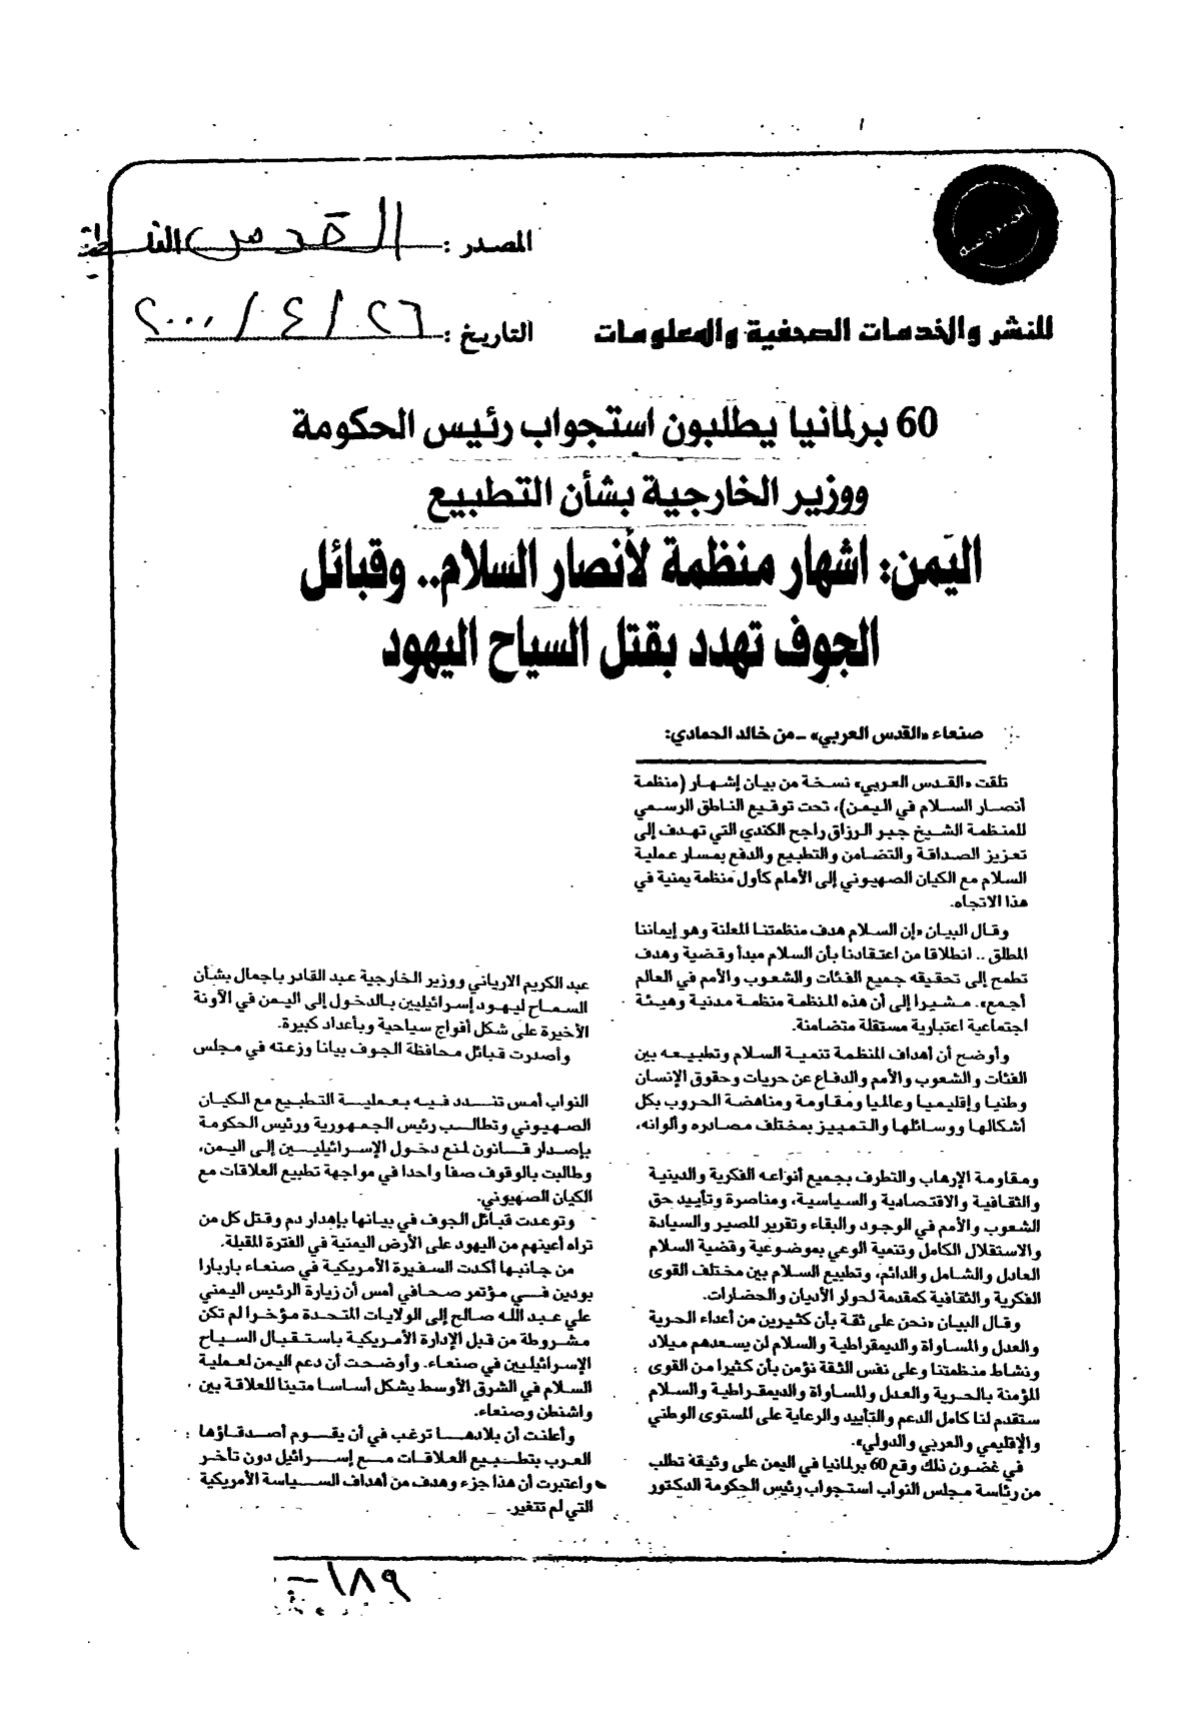 المصدر : القدس
للنشر والخدمات الصحفية والمعلومات
التاريخ : ٢٦ / ٤ / ٢٠٠٠
60 برلمانيا يطلبون استجواب رئيس الحكومة
ووزير الخارجية بشأن التطبيع
اليمن: اشهار منظمة لأنصار السلام.. وقبائل
الجوف تهدد بقتل السياح اليهود
صنعاء «القدس العربي» ـ من خالد الحمادي:
تلقت «القدس العربي» نسخة من بيان إشهار (منظمة
أنصار السلام في اليمن)، تحت توقيع الناطق الرسمي
للمنظمة الشيخ جبر الرزاق راجح الكندي التي تهدف إلى
تعزيز الصداقة والتضامن والتطبيع والدفع بمسار عملية
السلام مع الكيان الصهيوني إلى الأمام كأول منظمة يمنية في
هذا الاتجاه.
وقال البيان «إن السلام هدف منظمتنا المعلنة وهو إيماننا
المطلق .. انطلاقا من اعتقادنا بأن السلام مبدأ وقضية وهدف
تطمح إلى تحقيقه جميع الفئات والشعوب والأمم في العالم
أجمع». مشيرا إلى أن هذه المنظمة منظمة مدنية وهيئة
اجتماعية اعتبارية مستقلة متضامنة.
وأوضح أن أهداف المنظمة تنمية السلام وتطبيعه بين
الفئات و الشعوب والأمم والدفاع عن حريات وحقوق الإنسان
وطنيا وإقليميا وعالميا ومقاومة ومناهضة الحروب بكل
أشكالها ووسائلها والتمييز بمختلف مصادره وألوانه،
ومقاومة الإرهاب والتطرف بجميع أنواعه الفكرية والدينية
والثقافية والاقتصادية والسياسية، ومناصرة وتأييد حق
الشعوب والأمم في الوجود والبقاء وتقرير المصير والسيادة
والاستقلال الكامل وتنمية الوعي بموضوعية وقضية السلام
العادل والشامل والدائم، وتطبيع السلام بين مختلف القوى
الفكرية والثقافية كمقدمة لحوار الأديان والحضارات.
وقال البيان «نحن على ثقة بأن كثيرين من أعداء الحرية
والعدل والمساواة والديمقراطية والسلام لن يسعدهم ميلاد
ونشاط منظمتنا وعلى نفس الثقة نؤمن بأن كثيرا من القوى
المؤمنة بالحرية والعدل والمساواة والديمقراطية والسلام
ستقدم لنا كامل الدعم والتأييد والرعاية على المستوى الوطني
والإقليمي والعربي والدولي».
في غضون ذلك وقع 60 برلمانيا في اليمن على وثيقة تطلب
من رئاسة مجلس النواب استجواب رئيس الحكومة الدكتور
عبد الكريم الارياني ووزير الخارجية عبد القادر باجمال بشأن
السماح ليهود إسرائيليين بالدخول إلى اليمن في الآونة
الأخيرة على شكل أفواج سياحية وبأعداد كبيرة.
وأصدرت قبائل محافظة الجوف بيانا وزعته في مجلس
النواب أمس تندد فيه بعملية التطبيع مع الكيان
الصهيوني وتطالب رئيس الجمهورية ورئيس الحكومة
بإصدار قانون لمنع دخول الإسرائيليين إلى اليمن،
وطالبت بالوقوف صفا واحدا في مواجهة تطبيع العلاقات مع
الكيان الصهيوني.
وتوعدت قبائل الجوف في بيانها بإهدار دم وقتل كل من
تراه أعينهم من اليهود على الأرض اليمنية في الفترة المقبلة.
من جانبها أكدت السفيرة الأمريكية في صنعاء باربارا
بودين في مؤتمر صحافي أمس أن زيارة الرئيس اليمني
علي عبد الله صالح إلى الولايات المتحدة مؤخرا لم تكن
مشروطة من قبل الإدارة الأمريكية باستقبال السياح
الإسرائيليين في صنعاء. وأوضحت أن دعم اليمن لعملية
السلام في الشرق الأوسط يشكل أساسا متينا للعلاقة بين
واشنطن وصنعاء.
وأعلنت أن بلادها ترغب في أن يقوم أصدقاؤها
العرب بتطبيع العلاقات مع إسرائيل دون تأخر
واعتبرت أن هذا جزء وهدف من أهداف السياسة الأمريكية
التي لم تتغير.
١٨٩